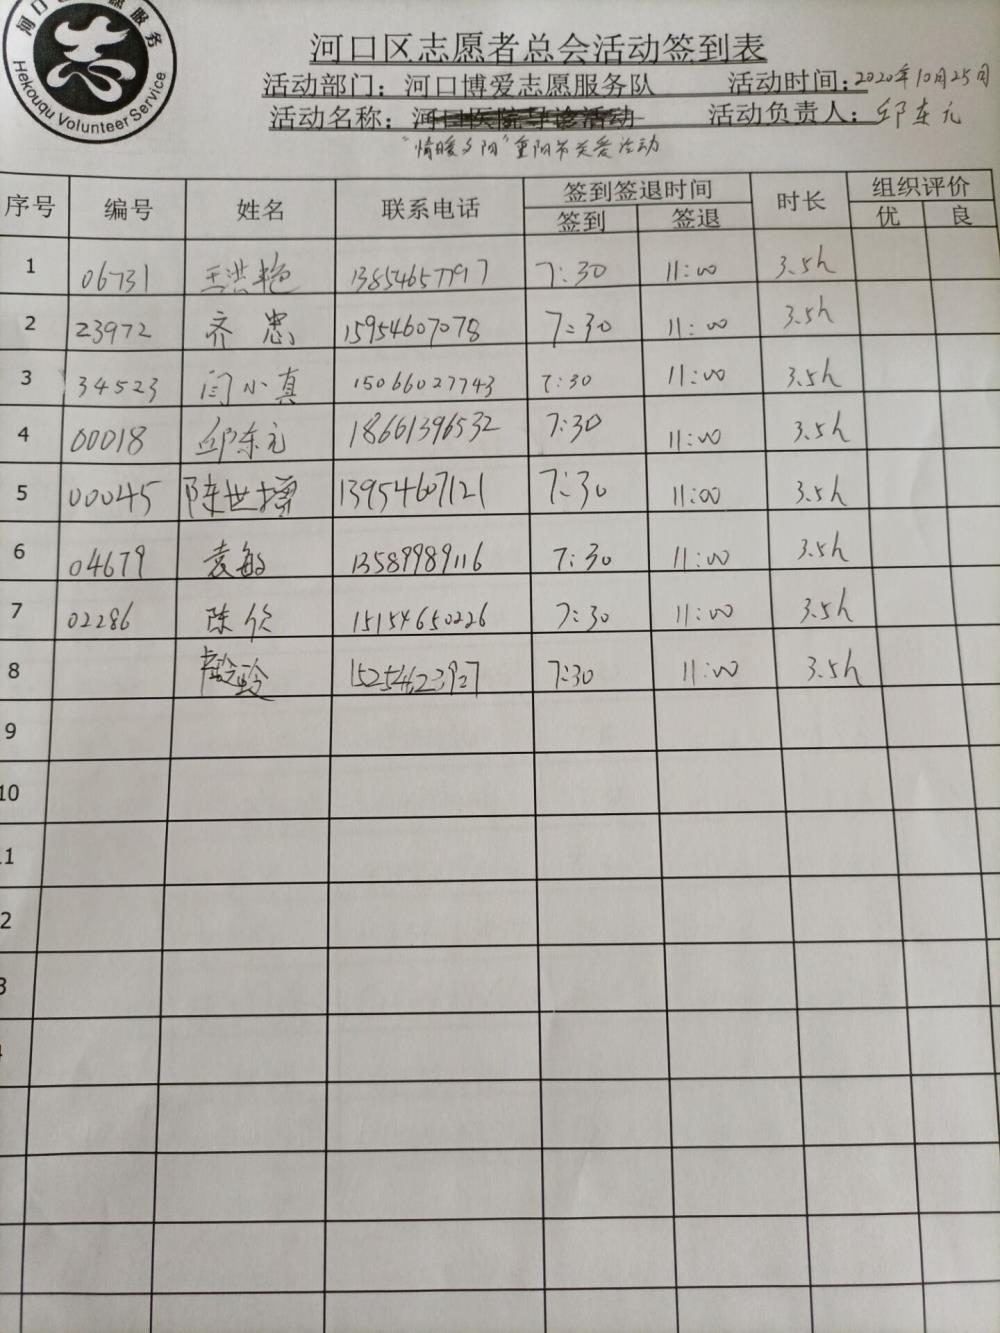 河口区志愿服务
Hekouqu Volunteer Service
河口区志愿者总会活动签到表
活动部门：河口博爱志愿服务队 活动时间：2020年10月25日
活动名称：河口医院导诊活动 活动负责人：邱东元
"情暖夕阳"重阳节关爱活动
序号 编号 姓名 联系电话 签到签退时间 时长 组织评价
签到 签退 优 良
1 06731 王洪艳 13854657797 7:30 11:00 3.5h
2 23972 齐忠 15954607078 7:30 11:00 3.5h
3 34523 闫小真 15066027743 7:30 11:00 3.5h
4 00018 邱东元 18661396532 7:30 11:00 3.5h
5 00045 陈世标 13954607121 7:30 11:00 3.5h
6 04679 袁敏 13589989116 7:30 11:00 3.5h
7 02286 陈欣 15154650226 7:30 11:00 3.5h
8 15254623927 7:30 11:00 3.5h
9
10
11
2
3
4